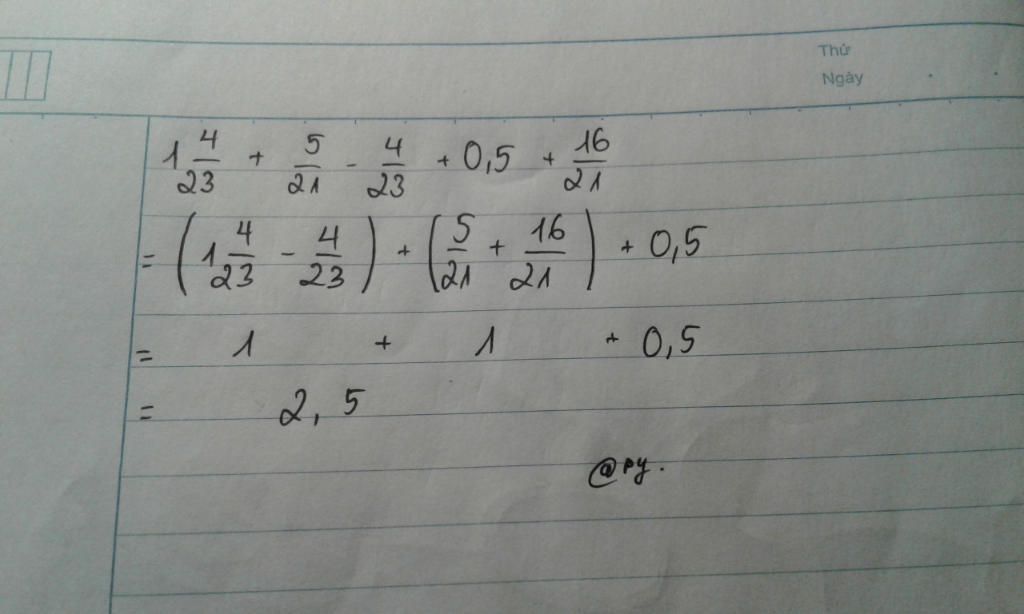 Thứ
Ngày
1 4/23 + 5/21 - 4/23 + 0,5 + 16/21
= (1 4/23 - 4/23) + (5/21 + 16/21) + 0,5
= 1 + 1 + 0,5
= 2,5
@py.